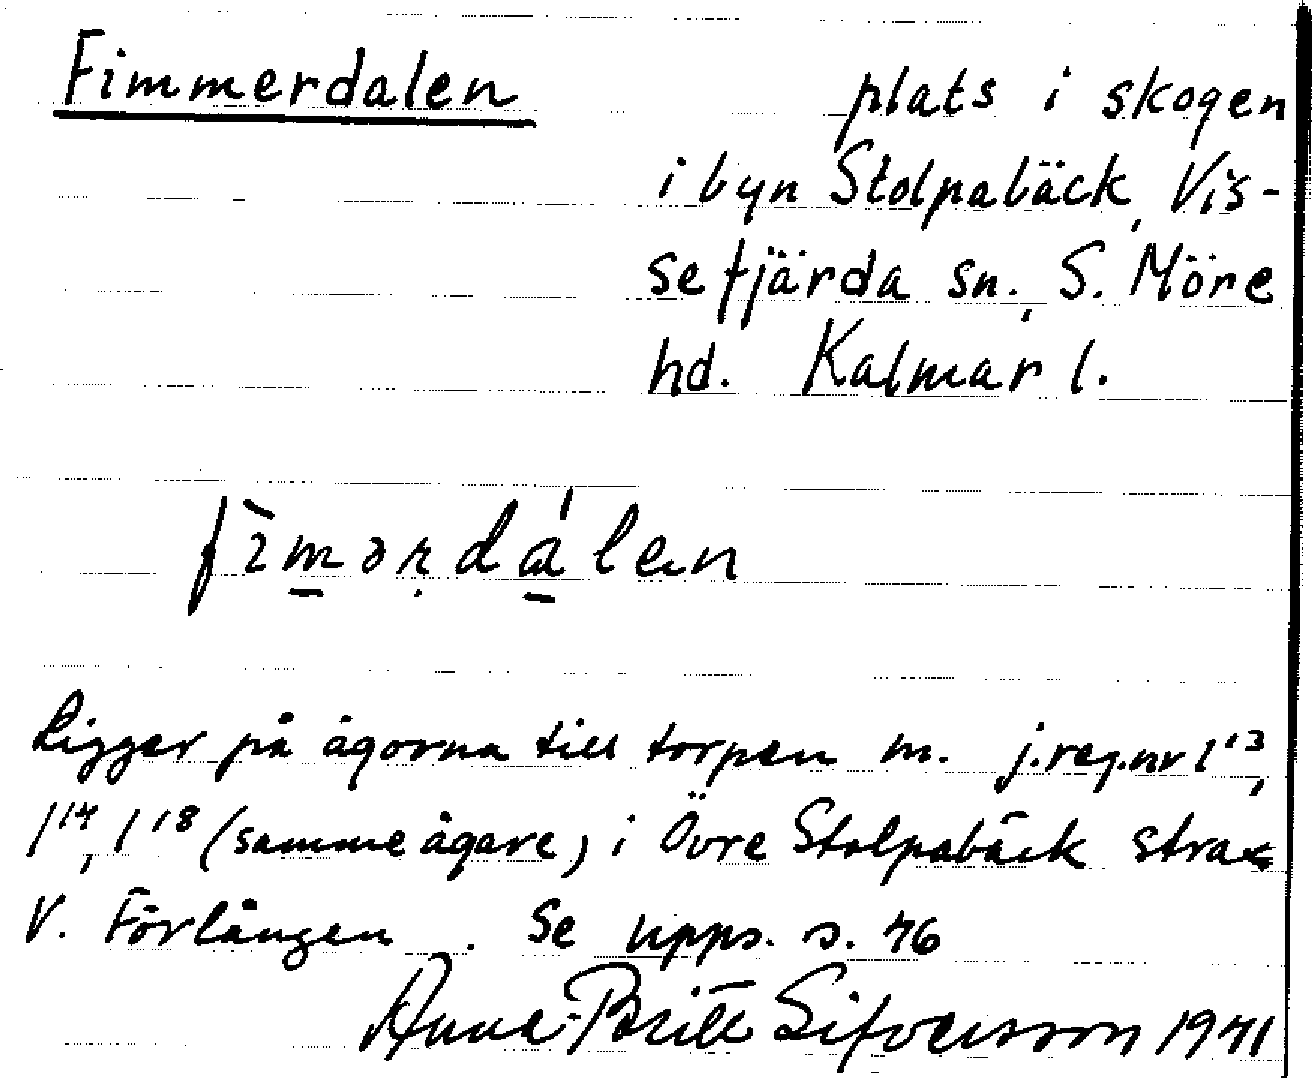 Fimmerdalen
plats i skogen
i byn Stolpabäck, Vis-
sefjärda sn., S. Möre
hd. Kalmar l.
fìmərdálen
Ligger på ägorna till torpen m. j.reg.nr 1¹³,
1¹⁴, 1¹⁸ (samme ägare) i Övre Stolpabäck strax
V. Förlången. Se upps. s. 46
Anna-Britt Sifversson 1941